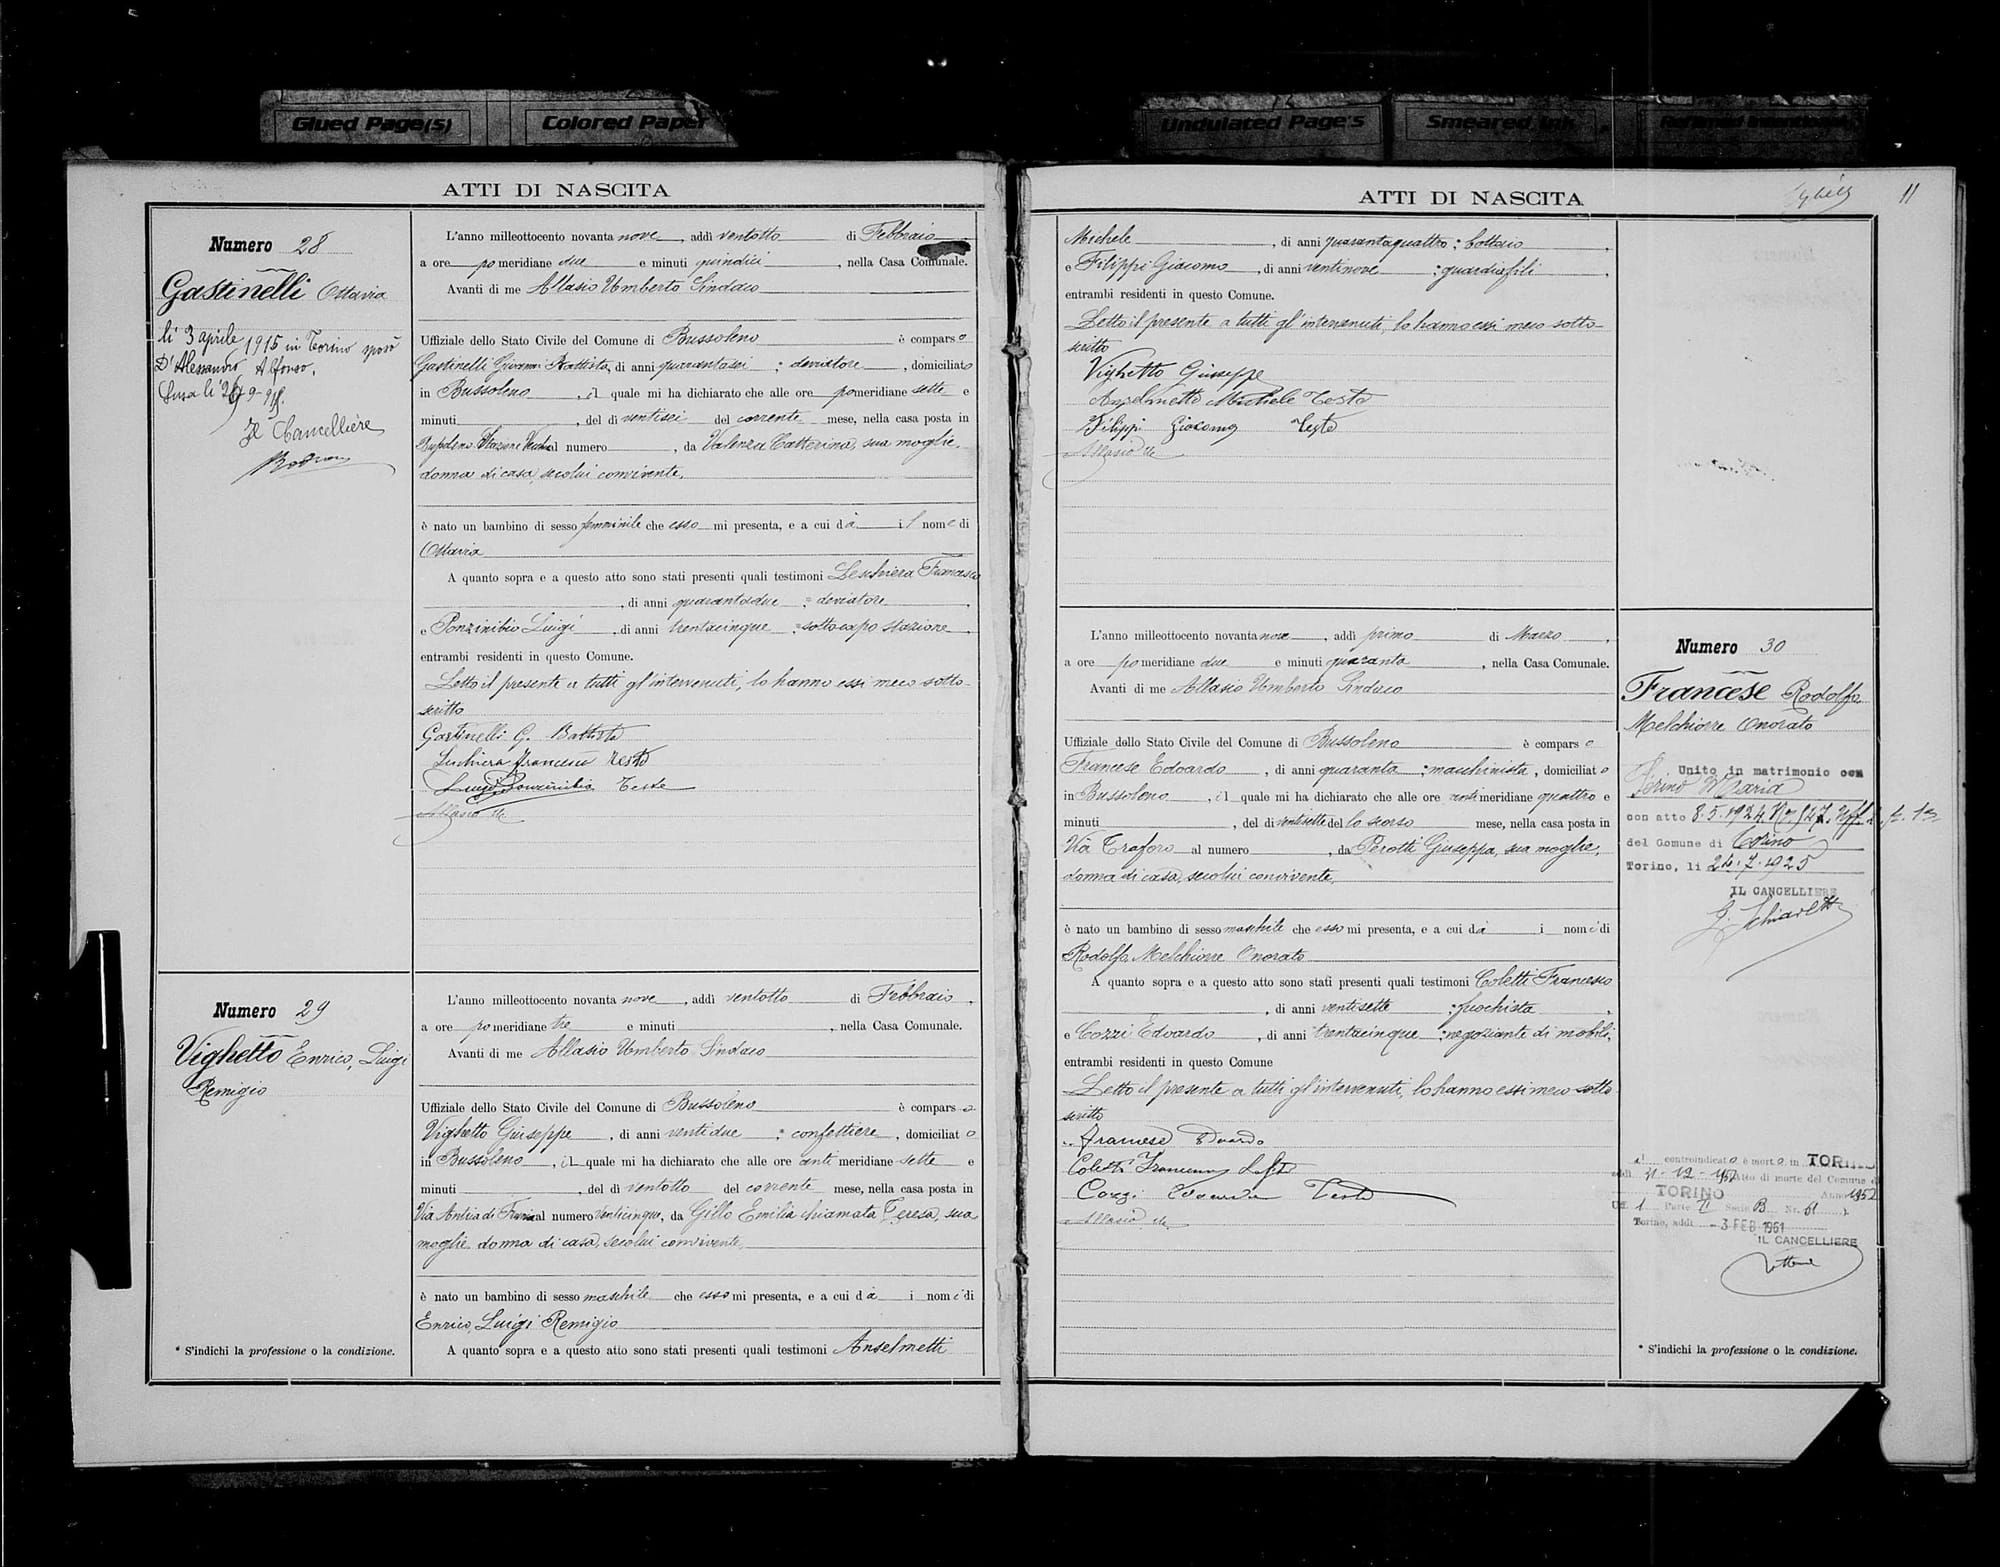 Glued Page(s)
Colored Paper
Undulated Page's
Smeared Ink
ATTI DI NASCITA
Numero 28
Gastinelli Ottavia
li 3 aprile 1915 in Torino sposò
D'Alessandro Alfonso.
Susa li
Il Cancelliere
L'anno milleottocento novanta nove, addì ventotto di Febbraio
a ore pomeridiane due e minuti quindici, nella Casa Comunale.
Avanti di me Allasio Umberto Sindaco
Uffiziale dello Stato Civile del Comune di Bussoleno è comparso
Gastinelli Giovanni Battista, di anni quarantasei : deviatore, domiciliato
in Bussoleno, il quale mi ha dichiarato che alle ore pomeridiane sette e
minuti , del dì ventisei del corrente mese, nella casa posta in
Bussoleno Stazione Vecchia al numero , da Valenza Catterina, sua moglie
donna di casa, secolui convivente,
è nato un bambino di sesso femminile che esso mi presenta, e a cui dà il nome di
Ottavia
A quanto sopra e a questo atto sono stati presenti quali testimoni Leschiera Francesco
, di anni quarantadue : deviatore,
e Ponzinibio Luigi, di anni trentacinque : sottocapo stazione,
entrambi residenti in questo Comune.
Letto il presente a tutti gl'intervenuti, lo hanno essi meco sotto-
scritto
Gastinelli G. Battista
Leschiera Francesco Teste
Luigi Ponzinibio Teste
Allasio
Numero 29
Vighetto Enrico, Luigi
Remigio
* S'indichi la professione o la condizione.
L'anno milleottocento novanta nove, addì ventotto di Febbraio,
a ore pomeridiane tre e minuti , nella Casa Comunale.
Avanti di me Allasio Umberto Sindaco
Uffiziale dello Stato Civile del Comune di Bussoleno è comparso
Vighetto Giuseppe, di anni ventidue : confettiere, domiciliato
in Bussoleno, il quale mi ha dichiarato che alle ore antimeridiane sette e
minuti , del dì ventotto del corrente mese, nella casa posta in
Via Antica di Francia al numero venticinque, da Gillo Emilia chiamata Teresa, sua
moglie donna di casa, secolui convivente,
è nato un bambino di sesso maschile che esso mi presenta, e a cui dà i nomi di
Enrico, Luigi Remigio
A quanto sopra e a questo atto sono stati presenti quali testimoni Anselmetti
ATTI DI NASCITA
11
Michele , di anni quarantaquattro : bottaio,
e Filippi Giacomo, di anni ventinove : guardiafili,
entrambi residenti in questo Comune.
Letto il presente a tutti gl'intervenuti, lo hanno essi meco sotto-
scritto
Vighetto Giuseppe
Anselmetti Michele Teste
Filippi Giacomo Teste
Allasio
L'anno milleottocento novanta nove, addì primo di Marzo,
a ore pomeridiane due e minuti quaranta, nella Casa Comunale.
Avanti di me Allasio Umberto Sindaco
Uffiziale dello Stato Civile del Comune di Bussoleno è comparso
Francese Edoardo, di anni quaranta : maschinista, domiciliato
in Bussoleno, il quale mi ha dichiarato che alle ore antimeridiane quattro e
minuti , del dì ventisette del lo scorso mese, nella casa posta in
Via Traforo al numero , da Perotti Giuseppa, sua moglie,
donna di casa, secolui convivente,
è nato un bambino di sesso maschile che esso mi presenta, e a cui dà i nomi di
Rodolfo Melchiorre Onorato
A quanto sopra e a questo atto sono stati presenti quali testimoni Coletti Francesco
, di anni ventisette : fuochista,
e Cozzi Edoardo, di anni trentacinque : negoziante di mobili,
entrambi residenti in questo Comune
Letto il presente a tutti gl'intervenuti, lo hanno essi meco sotto
scritto
Francese Eduardo
Coletti Francesco Teste
Cozzi Edoardo Teste
Allasio
Numero 30
Francese Rodolfo
Melchiorre Onorato
Unito in matrimonio con
Maria
con atto 8.5.1924 No
del Comune di Torino
Torino, li 24.7.1925
IL CANCELLIERE
controindicato è morto in TORINO
addì 21-12-1952 Atto di morte del Comune di
TORINO Anno 1952
Uff. 1 Parte II Serie B Nr. 61
Torino, addì -3 FEB 1961
IL CANCELLIERE
* S'indichi la professione o la condizione.